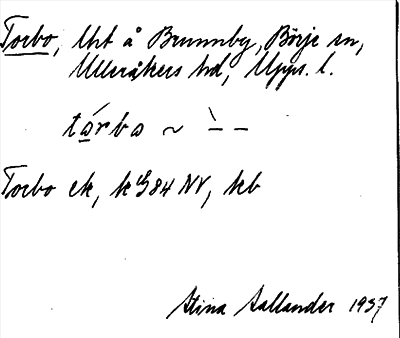 Torbo, lht å Brunnby, Börje sn,
Ulleråkers hd, Upps. l.
tárbo ~ `– –
Torbo ek, k 84 NV, hb
Stina Sallander 1937